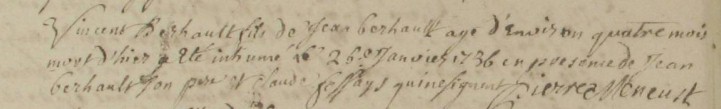 Vincent Bezhault fils de Jean bezhault agé d'environ quatre mois
mort d'hier a été inhumé le 26e Janvier 1736 en presence de Jean
bezhault son pere et claude qui ne signent Pierre Meneust